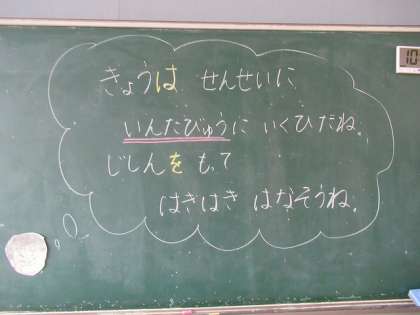 きょうは せんせいに
いんたびゅうに いくひだね。
じしんを もって
はきはき はなそうね。
10